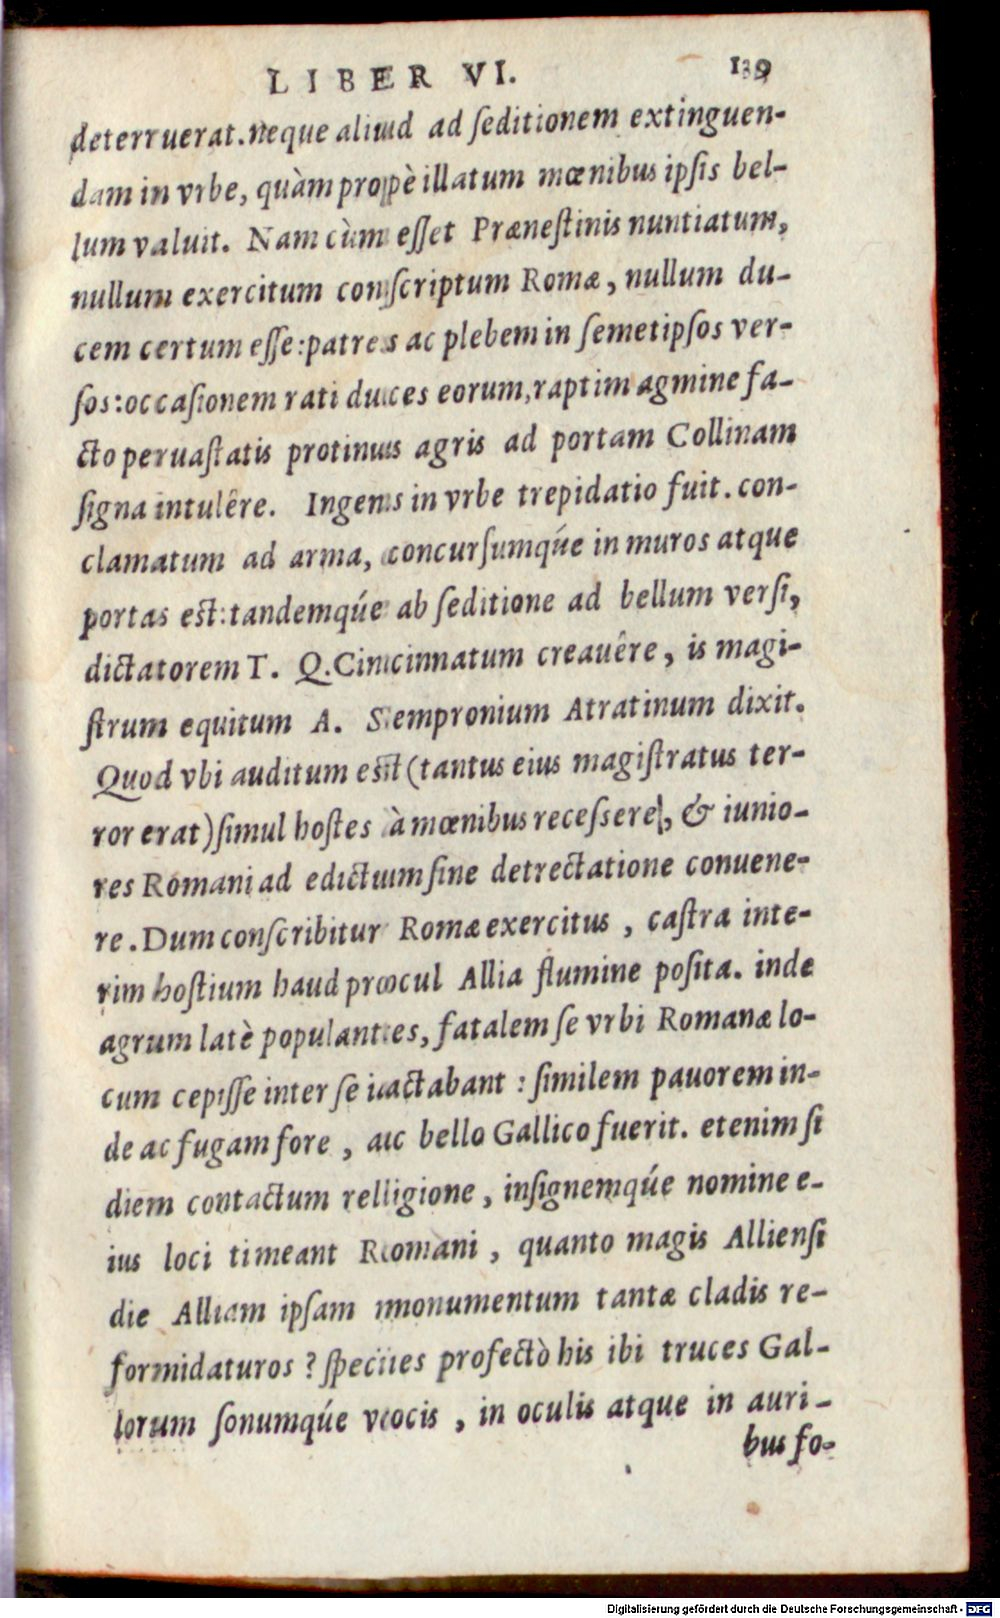 LIBER VI. 139
deterruerat. neque aliud ad ſeditionem extinguen-
dam in vrbe, quàm propè illatum mœnibus ipſis bel-
lum valuit. Nam cùm eſſet Præneſtinis nuntiatum,
nullum exercitum conſcriptum Romæ, nullum du-
cem certum eſſe: patres ac plebem in ſemetipſos ver-
ſos: occaſionem rati duces eorum, raptim agmine fa-
cto peruaſtatis protinus agris ad portam Collinam
ſigna intulêre. Ingens in vrbe trepidatio fuit. con-
clamatum ad arma, concurſumqúe in muros atque
portas est: tandemqúe ab ſeditione ad bellum verſi,
dictatorem T. Q. Cincinnatum creauêre, is magi-
ſtrum equitum A. Sempronium Atratinum dixit.
Quod vbi auditum est (tantus eius magiſtratus ter-
ror erat) ſimul hoſtes à mœnibus receſſere, & iunio-
res Romani ad edictum ſine detrectatione conuene-
re. Dum conſcribitur Romæ exercitus, caſtra inte-
rim hoſtium haud procul Allia flumine poſita. inde
agrum latè populantes, fatalem ſe vrbi Romanæ lo-
cum cepiſſe inter ſe iactabant: ſimilem pauorem in-
de ac fugam fore, ac bello Gallico fuerit. etenim ſi
diem contactum religione, inſignemqúe nomine e-
ius loci timeant Romani, quanto magis Allienſi
die Alliam ipſam monumentum tantæ cladis re-
formidaturos? ſpecies profectò his ibi truces Gal-
lorum ſonumqúe vocis, in oculis atque in auri-
bus fo-
Digitalisierung gefördert durch die Deutsche Forschungsgemeinschaft - DFG